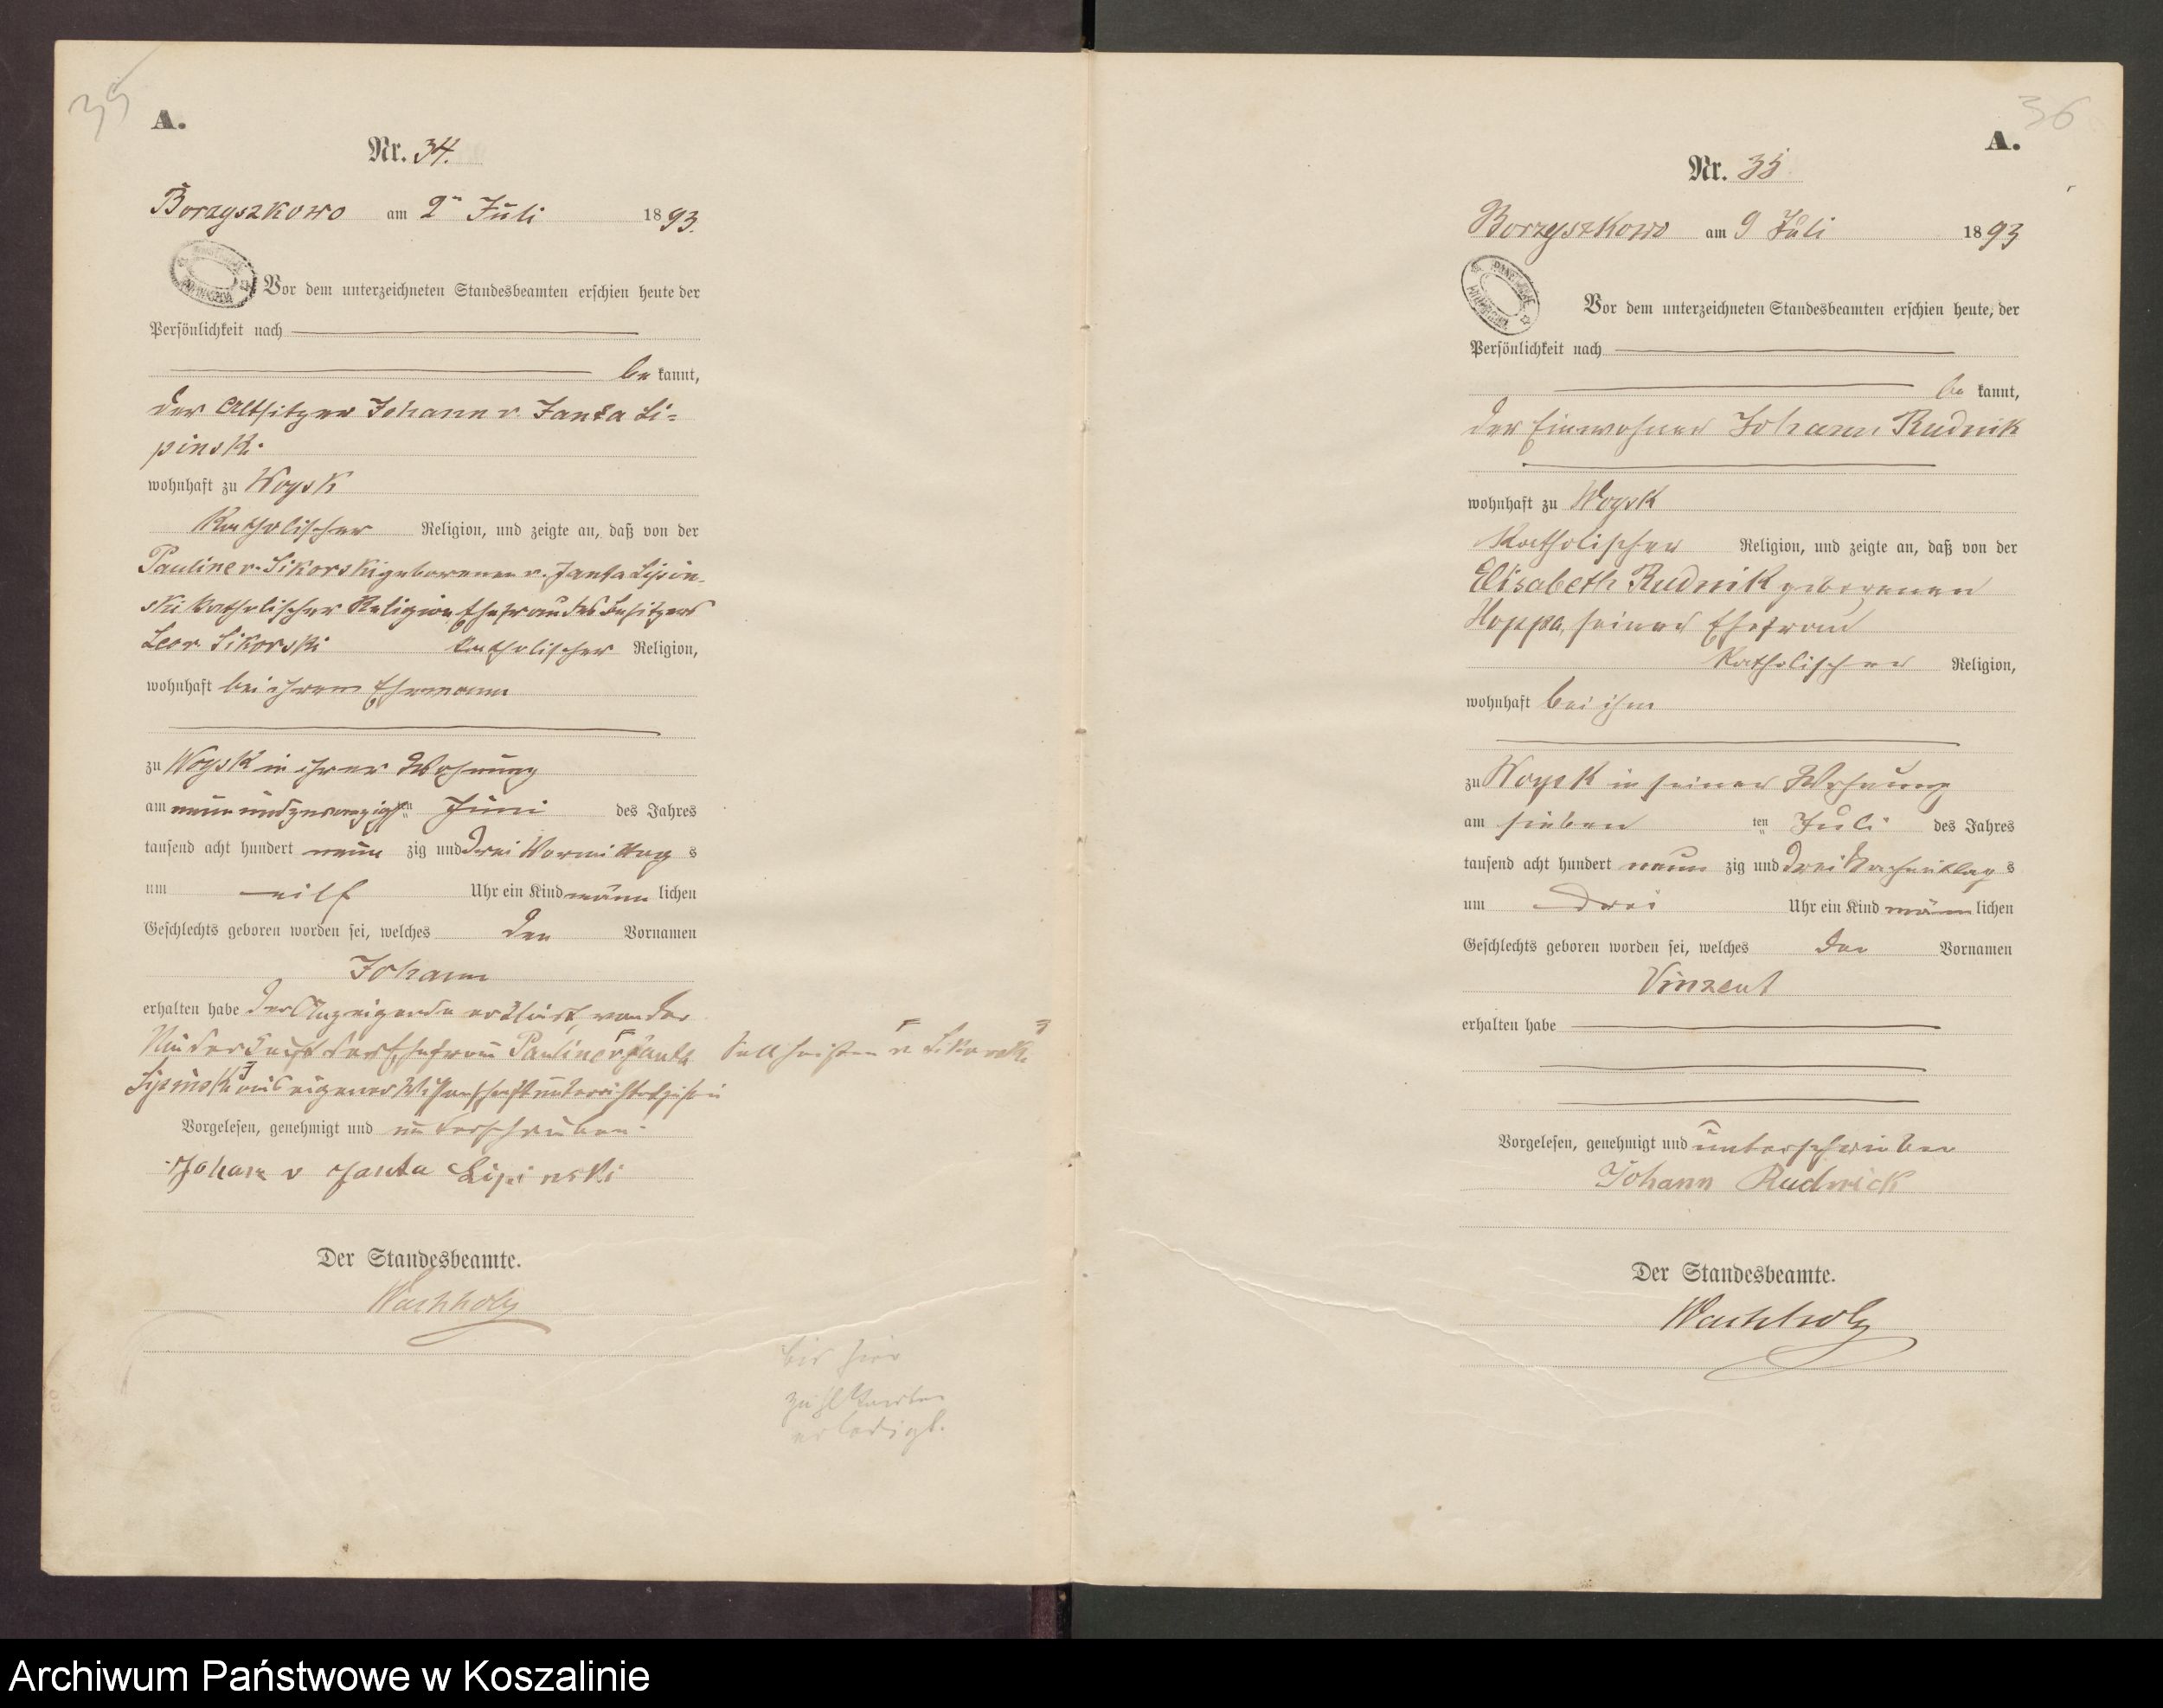 35
A.
Nr. 34.
Borzyszkowo am 2ten Juli 1893.
Vor dem unterzeichneten Standesbeamten erschien heute der
Persönlichkeit nach
be kannt,
der Altsitzer Johann v. Janta Li=
pinski
wohnhaft zu Woysk
katholischer Religion, und zeigte an, daß von der
Pauline v. Sikorski geborenen v. Janta Lipin-
ski katholischer Religion Ehefrau des Besitzers
Leo v. Sikorski katholischer Religion,
wohnhaft bei ihrem Ehemann
zu Woysk in ihrer Wohnung
am neun und zwanzigsten Juni des Jahres
tausend acht hundert neun zig und drei Vormittag s
um eilf Uhr ein Kind männ lichen
Geschlechts geboren worden sei, welches den Vornamen
Johann
erhalten habe der Anzeigende erklärt, von der
Niederkunft der Ehefrau Pauline v Janta soll heißen v. Sikorski
Lipinski aus eigener Wissenschaft unterrichtet zu sein
Vorgelesen, genehmigt und unterschrieben.
Johan v Janta Lipinski
Der Standesbeamte.
Wachholz
bis hier
Zählkarten
erledigt.
36
A.
Nr. 35
Borzyszkowo am 9 Juli 1893
Vor dem unterzeichneten Standesbeamten erschien heute, der
Persönlichkeit nach
be kannt,
der Einwohner Johann Rudnik
wohnhaft zu Woysk
katholischer Religion, und zeigte an, daß von der
Elisabeth Rudnik geborenen
Hoppa, seiner Ehefrau
katholischer Religion,
wohnhaft bei ihm
zu Woysk in seiner Wohnung
am sieben ten Juli des Jahres
tausend acht hundert neun zig und drei Nachmittag s
um drei Uhr ein Kind männ lichen
Geschlechts geboren worden sei, welches den Vornamen
Vinzent
erhalten habe
Vorgelesen, genehmigt und unterschrieben
Johann Rudnick
Der Standesbeamte.
Wachholz
Archiwum Państwowe w Koszalinie